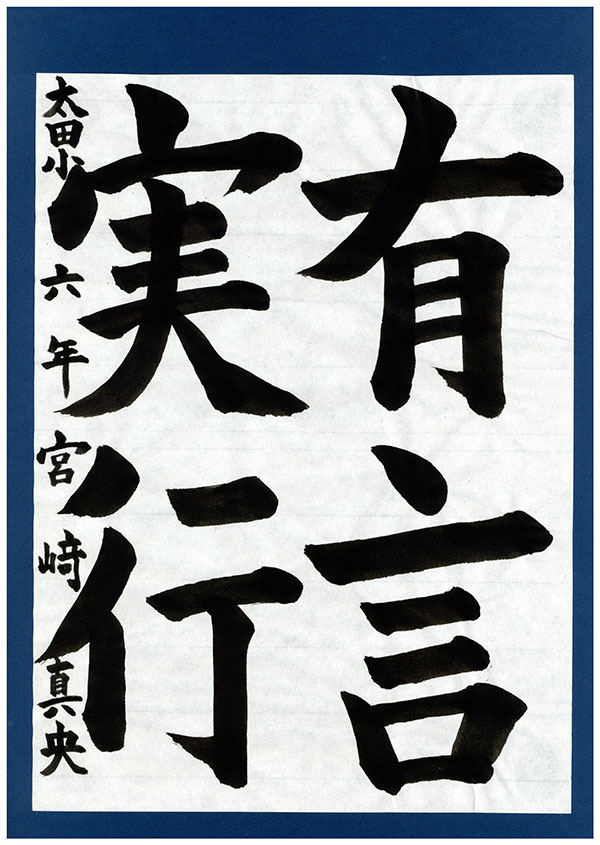 有言
実行
太田小六年宮﨑真央